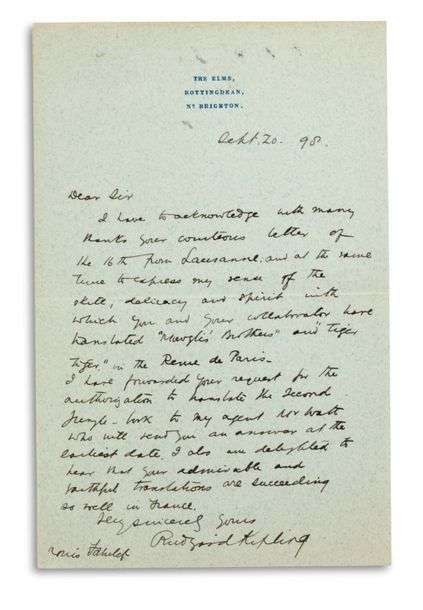 THE ELMS,
ROTTINGDEAN,
Nr BRIGHTON.
Sept. 20. 98.
Dear Sir
I have to acknowledge with many
thanks your courteous letter of
the 16th from Lausanne, and at the same
time to express my sense of the
skill, delicacy and spirit with
which you and your collaborator have
translated "Mowgli's Brothers" and "Tiger
Tiger," in the Revue de Paris.
I have forwarded your request for the
authorization to translate the Second
Jungle-book to my agent Mr Watt
who will send you an answer at the
earliest date. I also am delighted to
hear that your admirable and
faithful translations are succeeding
so well in France.
Very sincerely yours
Rudyard Kipling
Louis